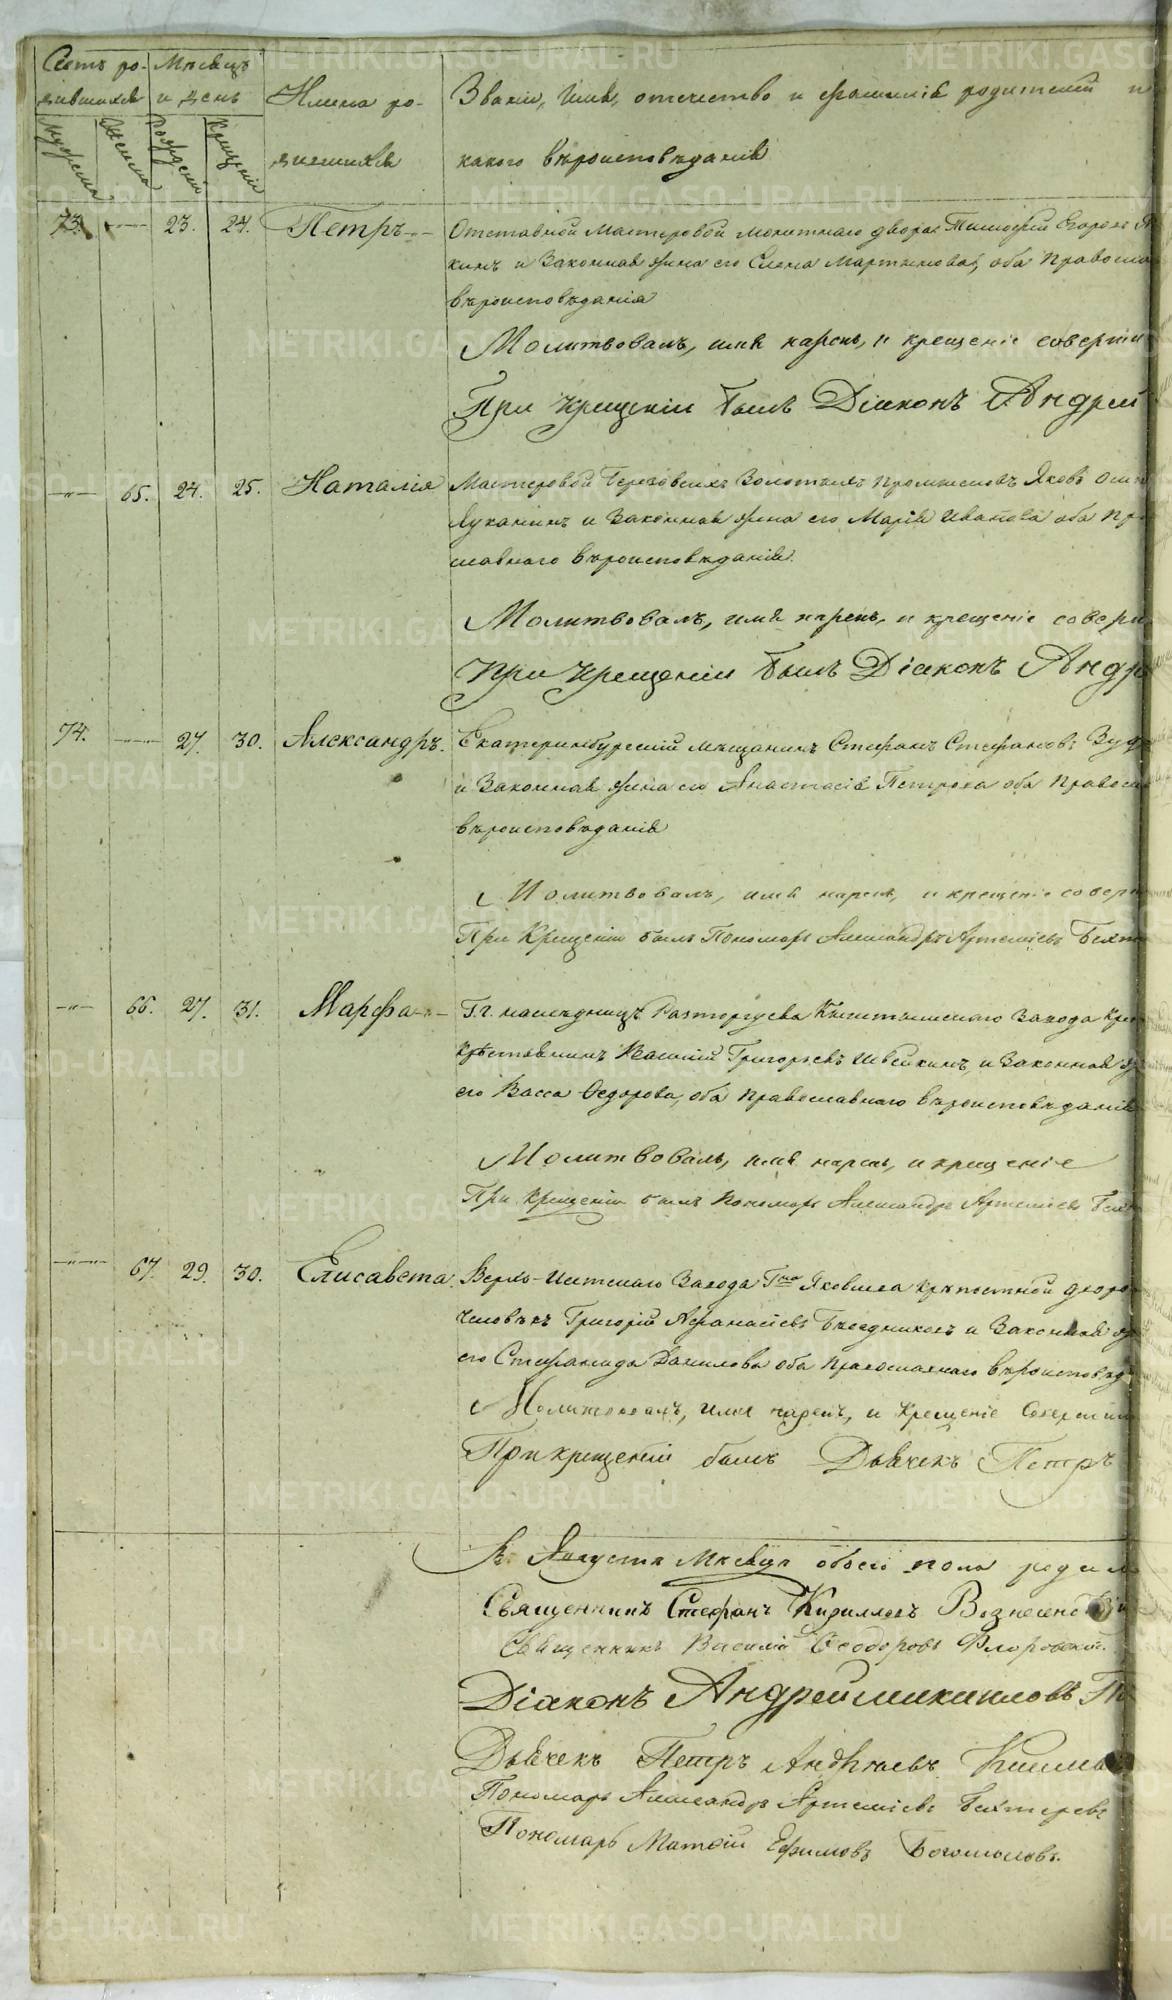 Счетъ ро- Мѣсяцъ
дившихся и день Имена ро- Званіе, Имя, отечество и фамилія родителей и
Мужеска Женска Рожденія Крещенія дившихся какого вѣроисповѣданія
73. —„— 23. 24. Петръ Отставной Мастеровой монетнаго двора Тимофей Егоровъ
кинъ и Законная жена его Елена Мартинова, оба Правосла
вѣроисповѣданія
Молитвовалъ, имя нарекъ, и крещеніе соверши
При крещеніи былъ Діаконъ Андрей
—„— 65. 24. 25. Наталія Мастеровой Березовскихъ Золотыхъ Промысловъ Яковъ Оси
Луканинъ и Законная жена его Марія Иванова оба Пра
славнаго вѣроисповѣданія.
Молитвовалъ, имя нарекъ, и крещеніе совери
При крещеніи былъ Діаконъ Андр
74. —„— 27. 30. Александръ. Екатеринбургскій мѣщанинъ Стефанъ Стефановъ
и Законная жена его Анастасія Петрова оба Правосл
вѣроисповѣданія
Молитвовалъ, имя нарекъ, и крещеніе совер
При Крещеніи былъ Пономарь Александръ Артеміевъ Бехт
—„— 66. 27. 31. Марфа Г.г. наслѣдницъ Расторгуева Кыштымскаго Завода
Крѣстьянинъ Василій Григорьевъ Швейкинъ, и Законная
его Васса Федорова, оба Православнаго вѣроисповѣданія
Молитвовалъ, имя нарекъ, и крещеніе
При Крещеніи былъ Пономарь Александръ Артеміевъ Бех
—„— 67. 29. 30. Елисавета. Верхъ-Исетскаго Завода Гна Яковлева крѣпостной дворо
человѣкъ Григорій Афанасіевъ и Законная
его Стефанида Данилова оба Православнаго вѣроисповѣд
Молитвовалъ, имя нарекъ, и Крещеніе Соверши
При крещеніи былъ Дьячекъ Петръ
Августа Мѣсяца обоего пола родил
Священникъ Стефанъ Кирилловъ Вознесенскій
Священникъ Василій Феодоровъ Флоровскій.
Діаконъ Андрей Михаиловъ
Дьячекъ Петръ Андреевъ
Пономарь Александръ Артеміевъ Бехтеревъ
Пономарь Матѳій Ефимовъ Богомоловъ.
METRIKI.GASO-URAL.RU